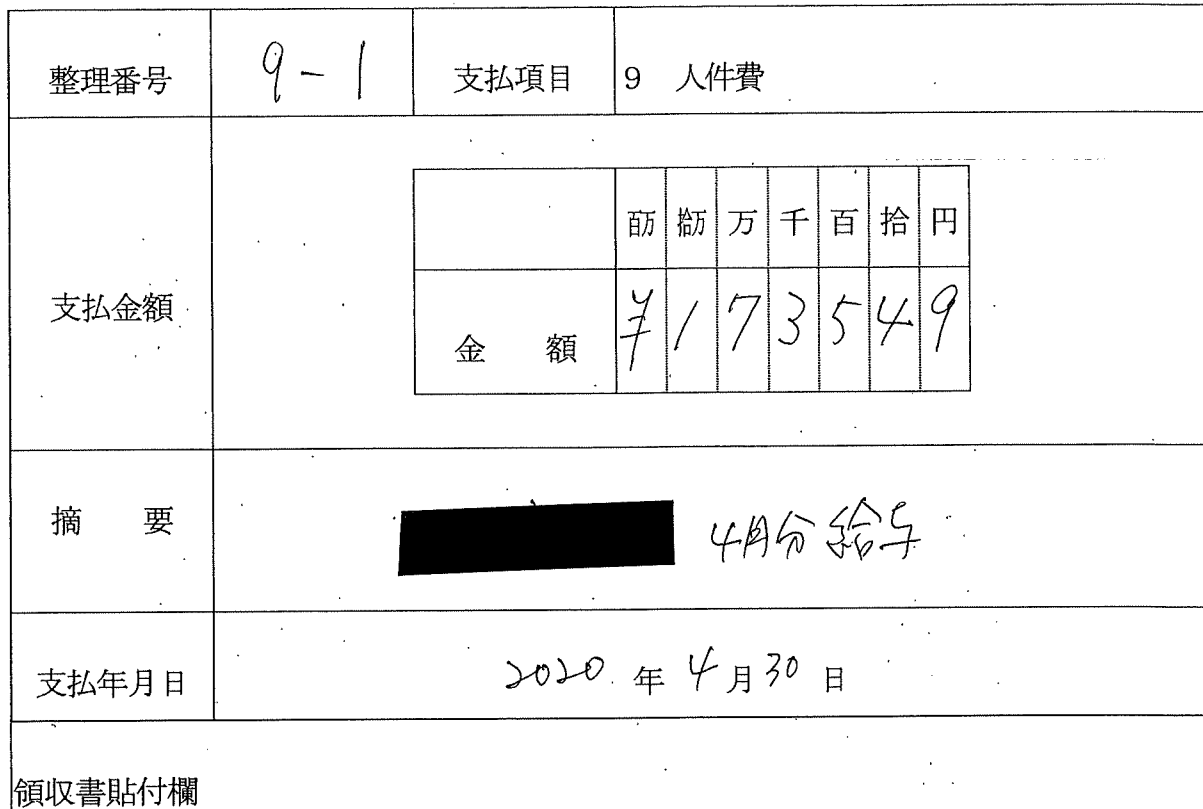 整理番号 9-1 支払項目 9 人件費
百万 拾万 万 千 百 拾 円
支払金額 金額 ¥173549
摘要 4月分給与
支払年月日 2020年4月30日
領収書貼付欄